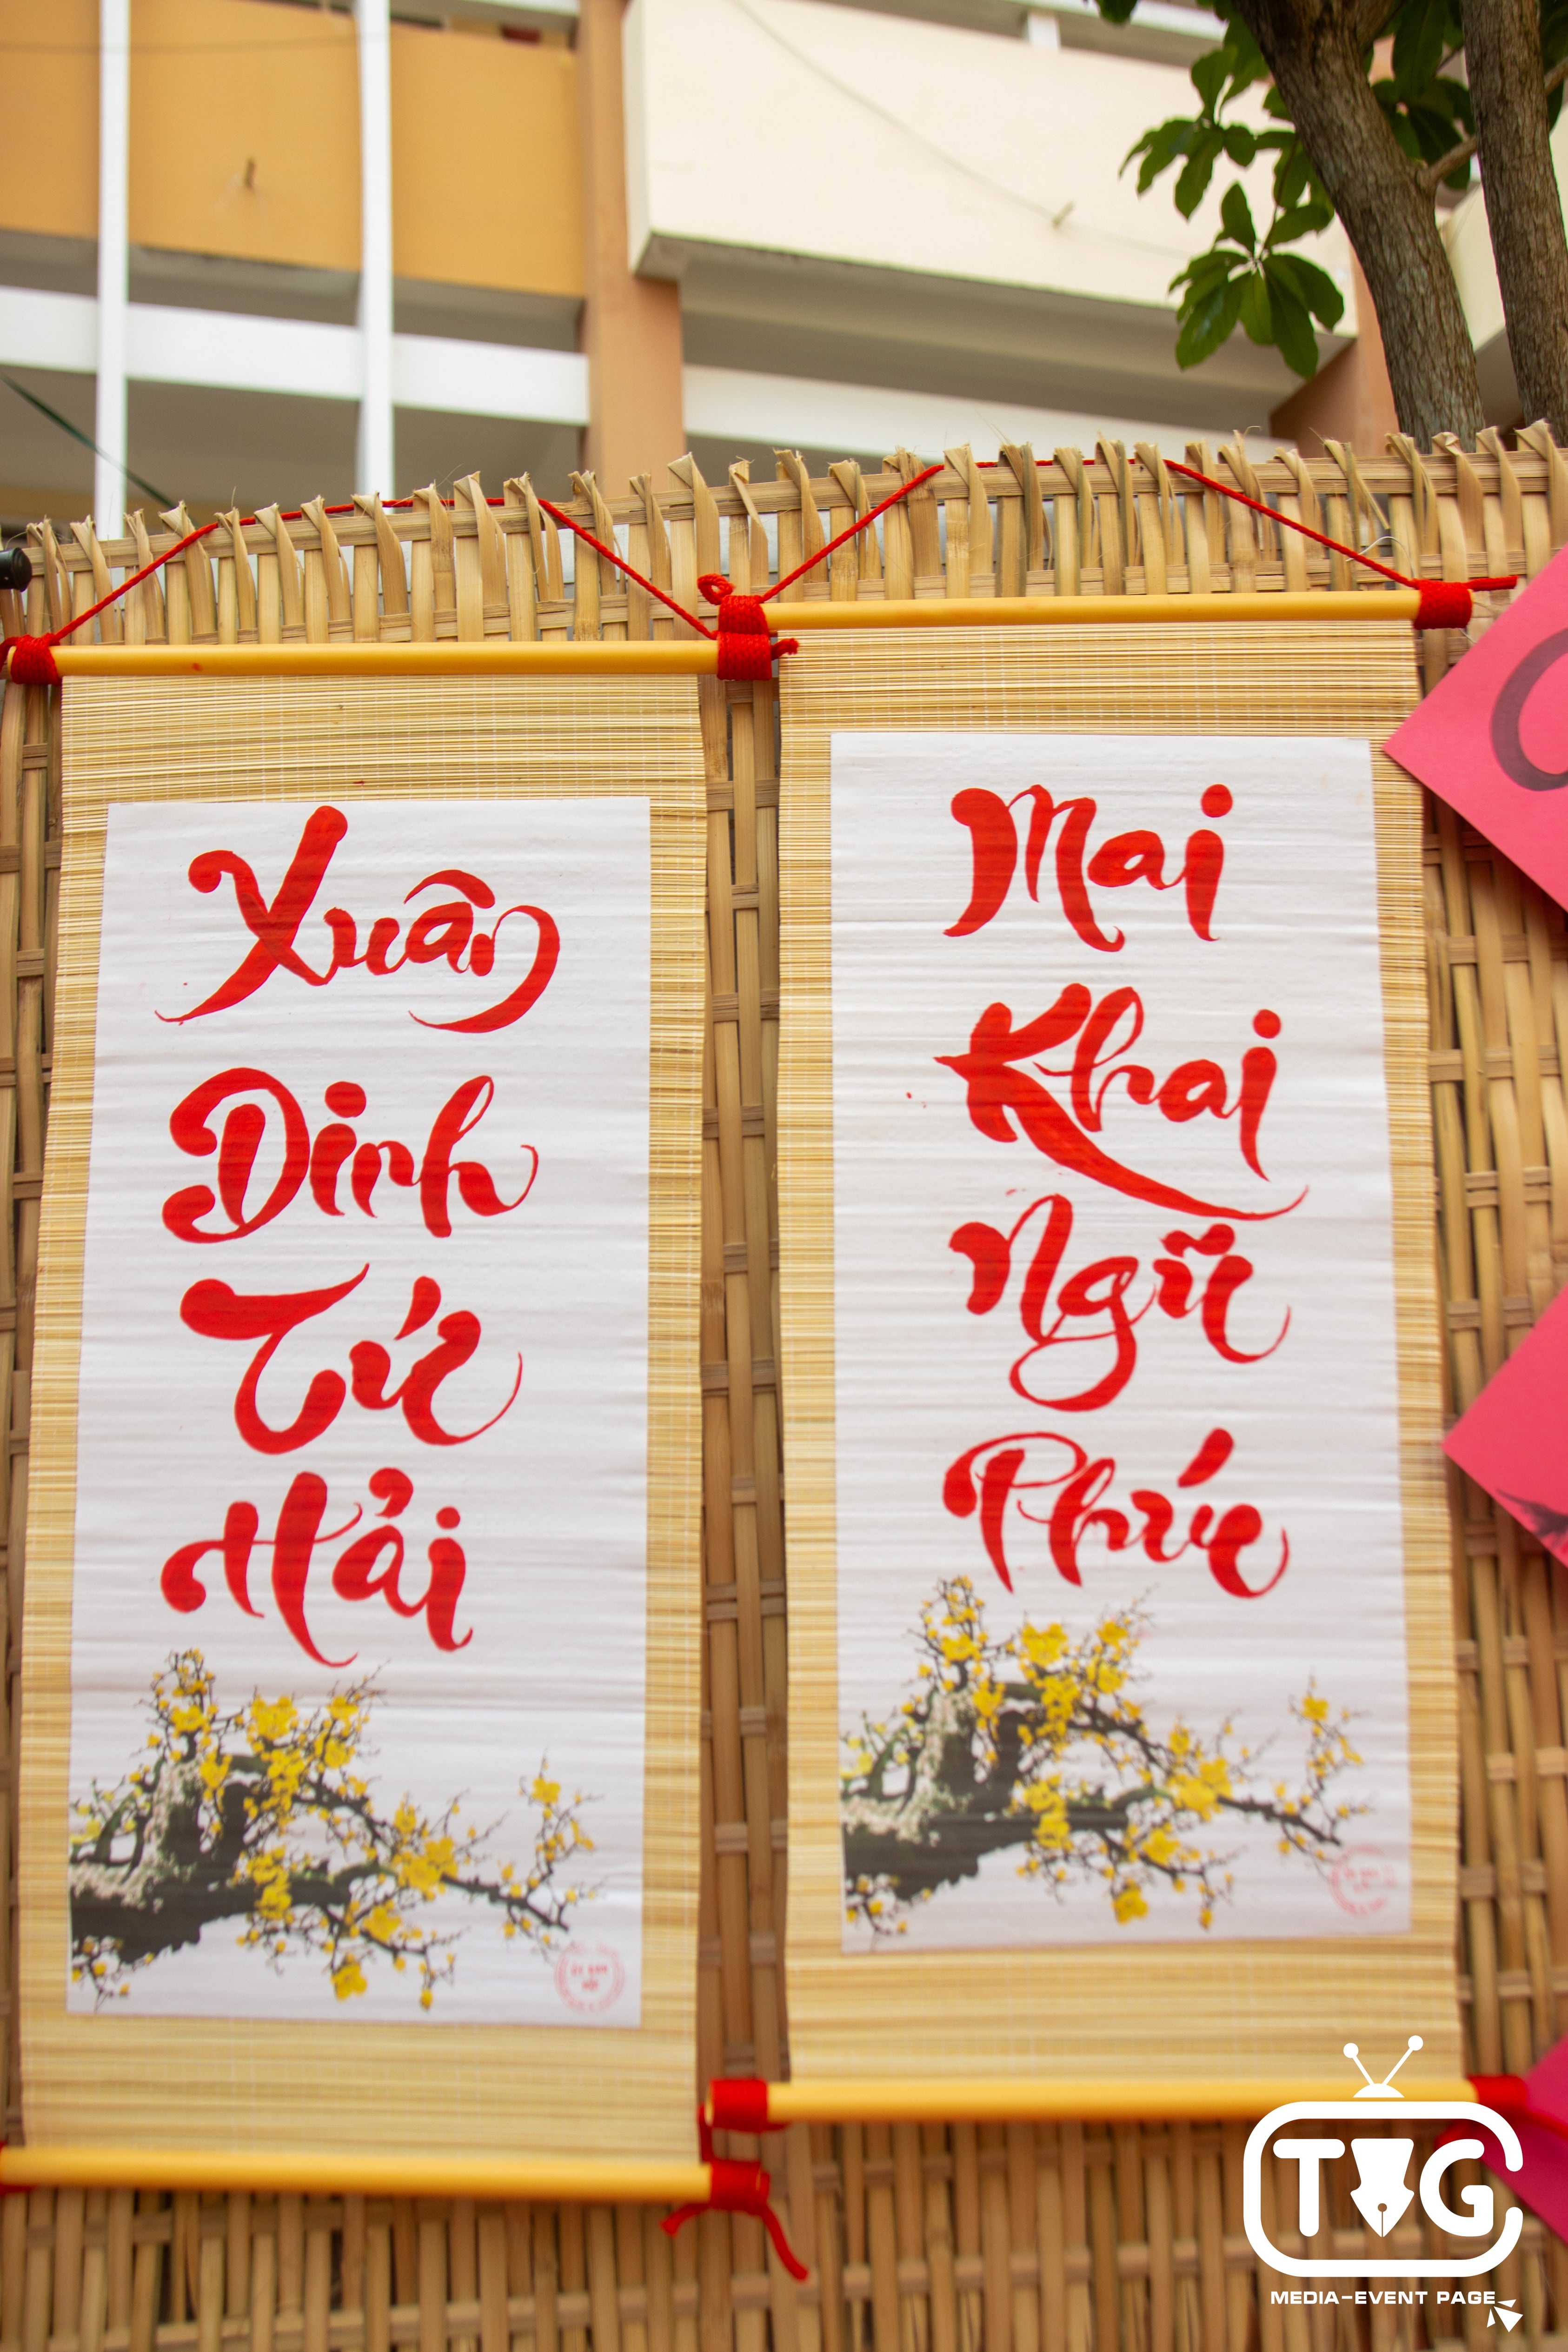 Xuân
Đinh
Tứ
Hải
Mai
Khai
Ngũ
Phúc
TG
MEDIA-EVENT PAGE